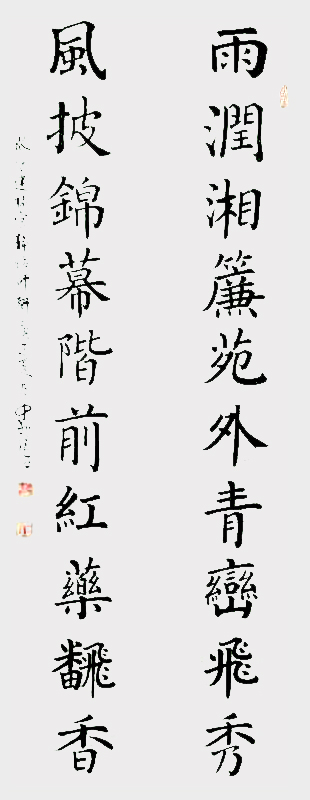 雨潤湘簾苑外青巒飛秀
風披錦幕階前紅藥翻香